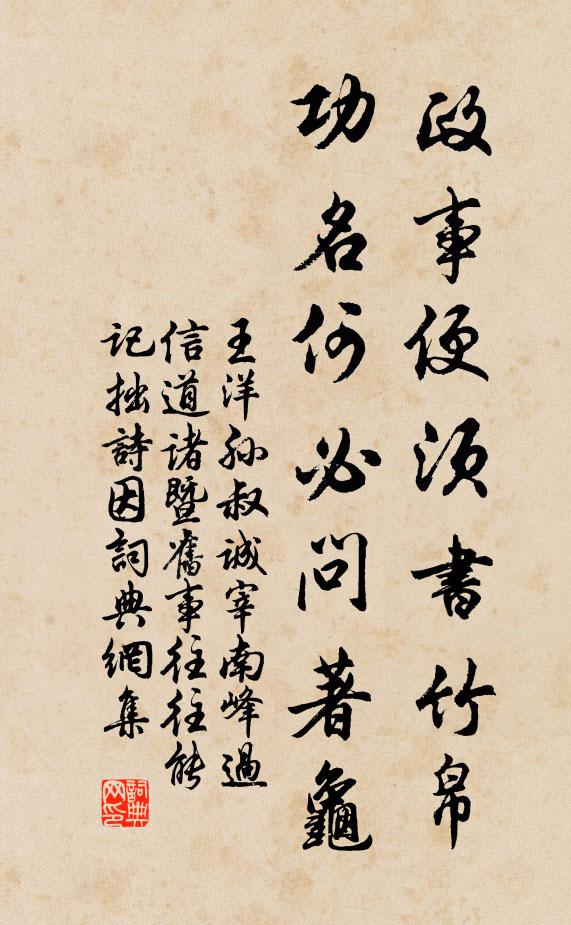 政事便须書竹帛
功名何必問著龜
王洋孙叔诚宰南峰過
信道诸暨舊事往往能
记拙詩因詞典網集
詞典网印